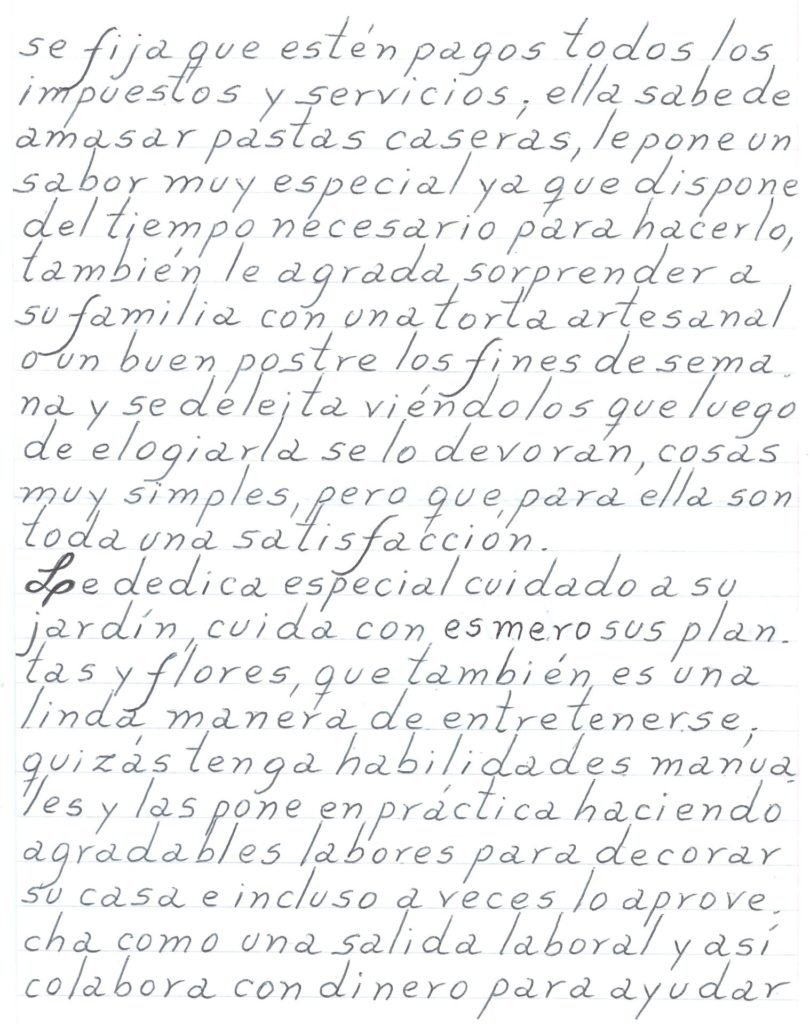 se fija que estén pagos todos los
impuestos y servicios; ella sabe de
amasar pastas caseras, le pone un
sabor muy especial ya que dispone
del tiempo necesario para hacerlo,
también le agrada sorprender a
su familia con una torta artesanal
o un buen postre los fines de sema-
na y se deleita viéndolos que luego
de elogiarla se lo devoran, cosas
muy simples, pero que para ella son
toda una satisfacción.
Le dedica especial cuidado a su
jardín, cuida con esmero sus plan-
tas y flores, que también es una
linda manera de entretenerse;
quizás tenga habilidades manua-
les y las pone en práctica haciendo
agradables labores para decorar
su casa e incluso a veces lo aprove-
cha como una salida laboral y así
colabora con dinero para ayudar